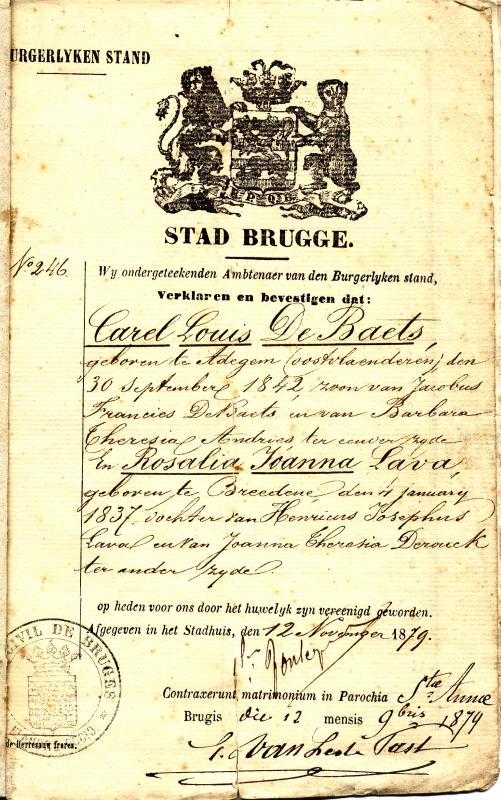 BURGERLYKEN STAND
S.P.Q.B.
STAD BRUGGE.
No 246.
Wy ondergeteekenden Ambtenaer van den Burgerlyken stand,
Verklaren en bevestigen dat:
Carel Louis De Baets,
geboren te Adegem (oostvlaenderen) den
30 september 1842, zoon van Jacobus
Francies De Baets en van Barbara
Theresia Andries ter eener zyde
En Rosalia Joanna Lava,
geboren te Breedene, den 4 january
1837 dochter van Henricus Josephus
Lava en van Joanna Theresia Derouck
ter ander zyde.
op heden voor ons door het huwelyk zyn vereenigd geworden.
Afgegeven in het Stadhuis, den 12 November 1879.
Contraxerunt matrimonium in Parochia Stae Annae
Brugis die 12 mensis 9bris 1879
Van
CIVIL DE BRUGES
de-Herressuu freres.